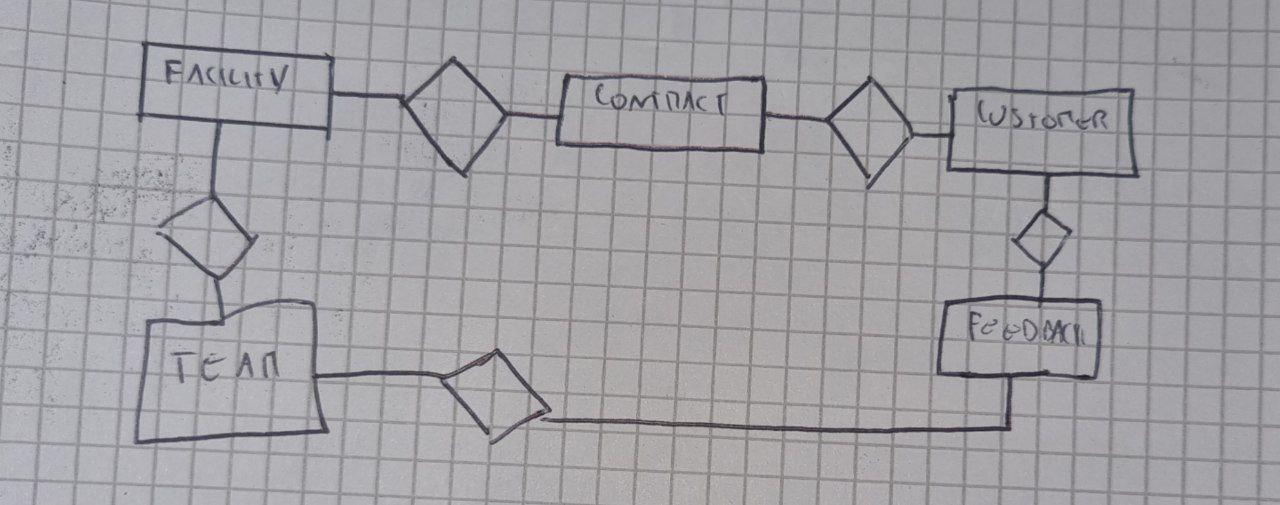 FACILITY
CONTRACT
CUSTOMER
TEAM
FEEDBACK